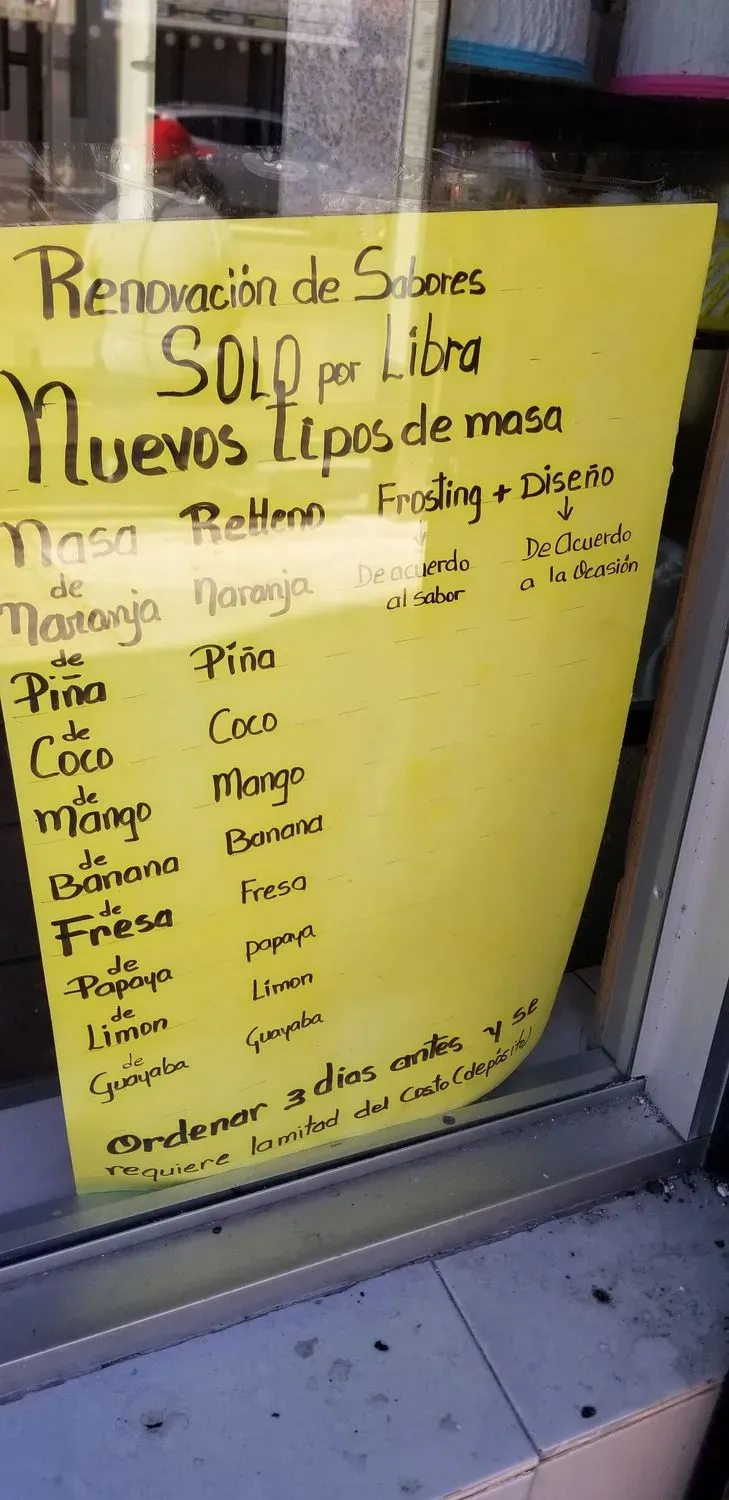 Renovación de Sabores
SOLO por Libra
Nuevos tipos de masa
Masa Relleno Frosting + Diseño
de Naranja Naranja De acuerdo al sabor De Acuerdo a la Ocasión
de Piña Piña
de Coco Coco
de mango Mango
de Banana Banana
de Fresa Fresa
de Papaya papaya
de Limon Limon
de Guayaba Guayaba
Ordenar 3 dias antes y se
requiere la mitad del Costo (depósito)